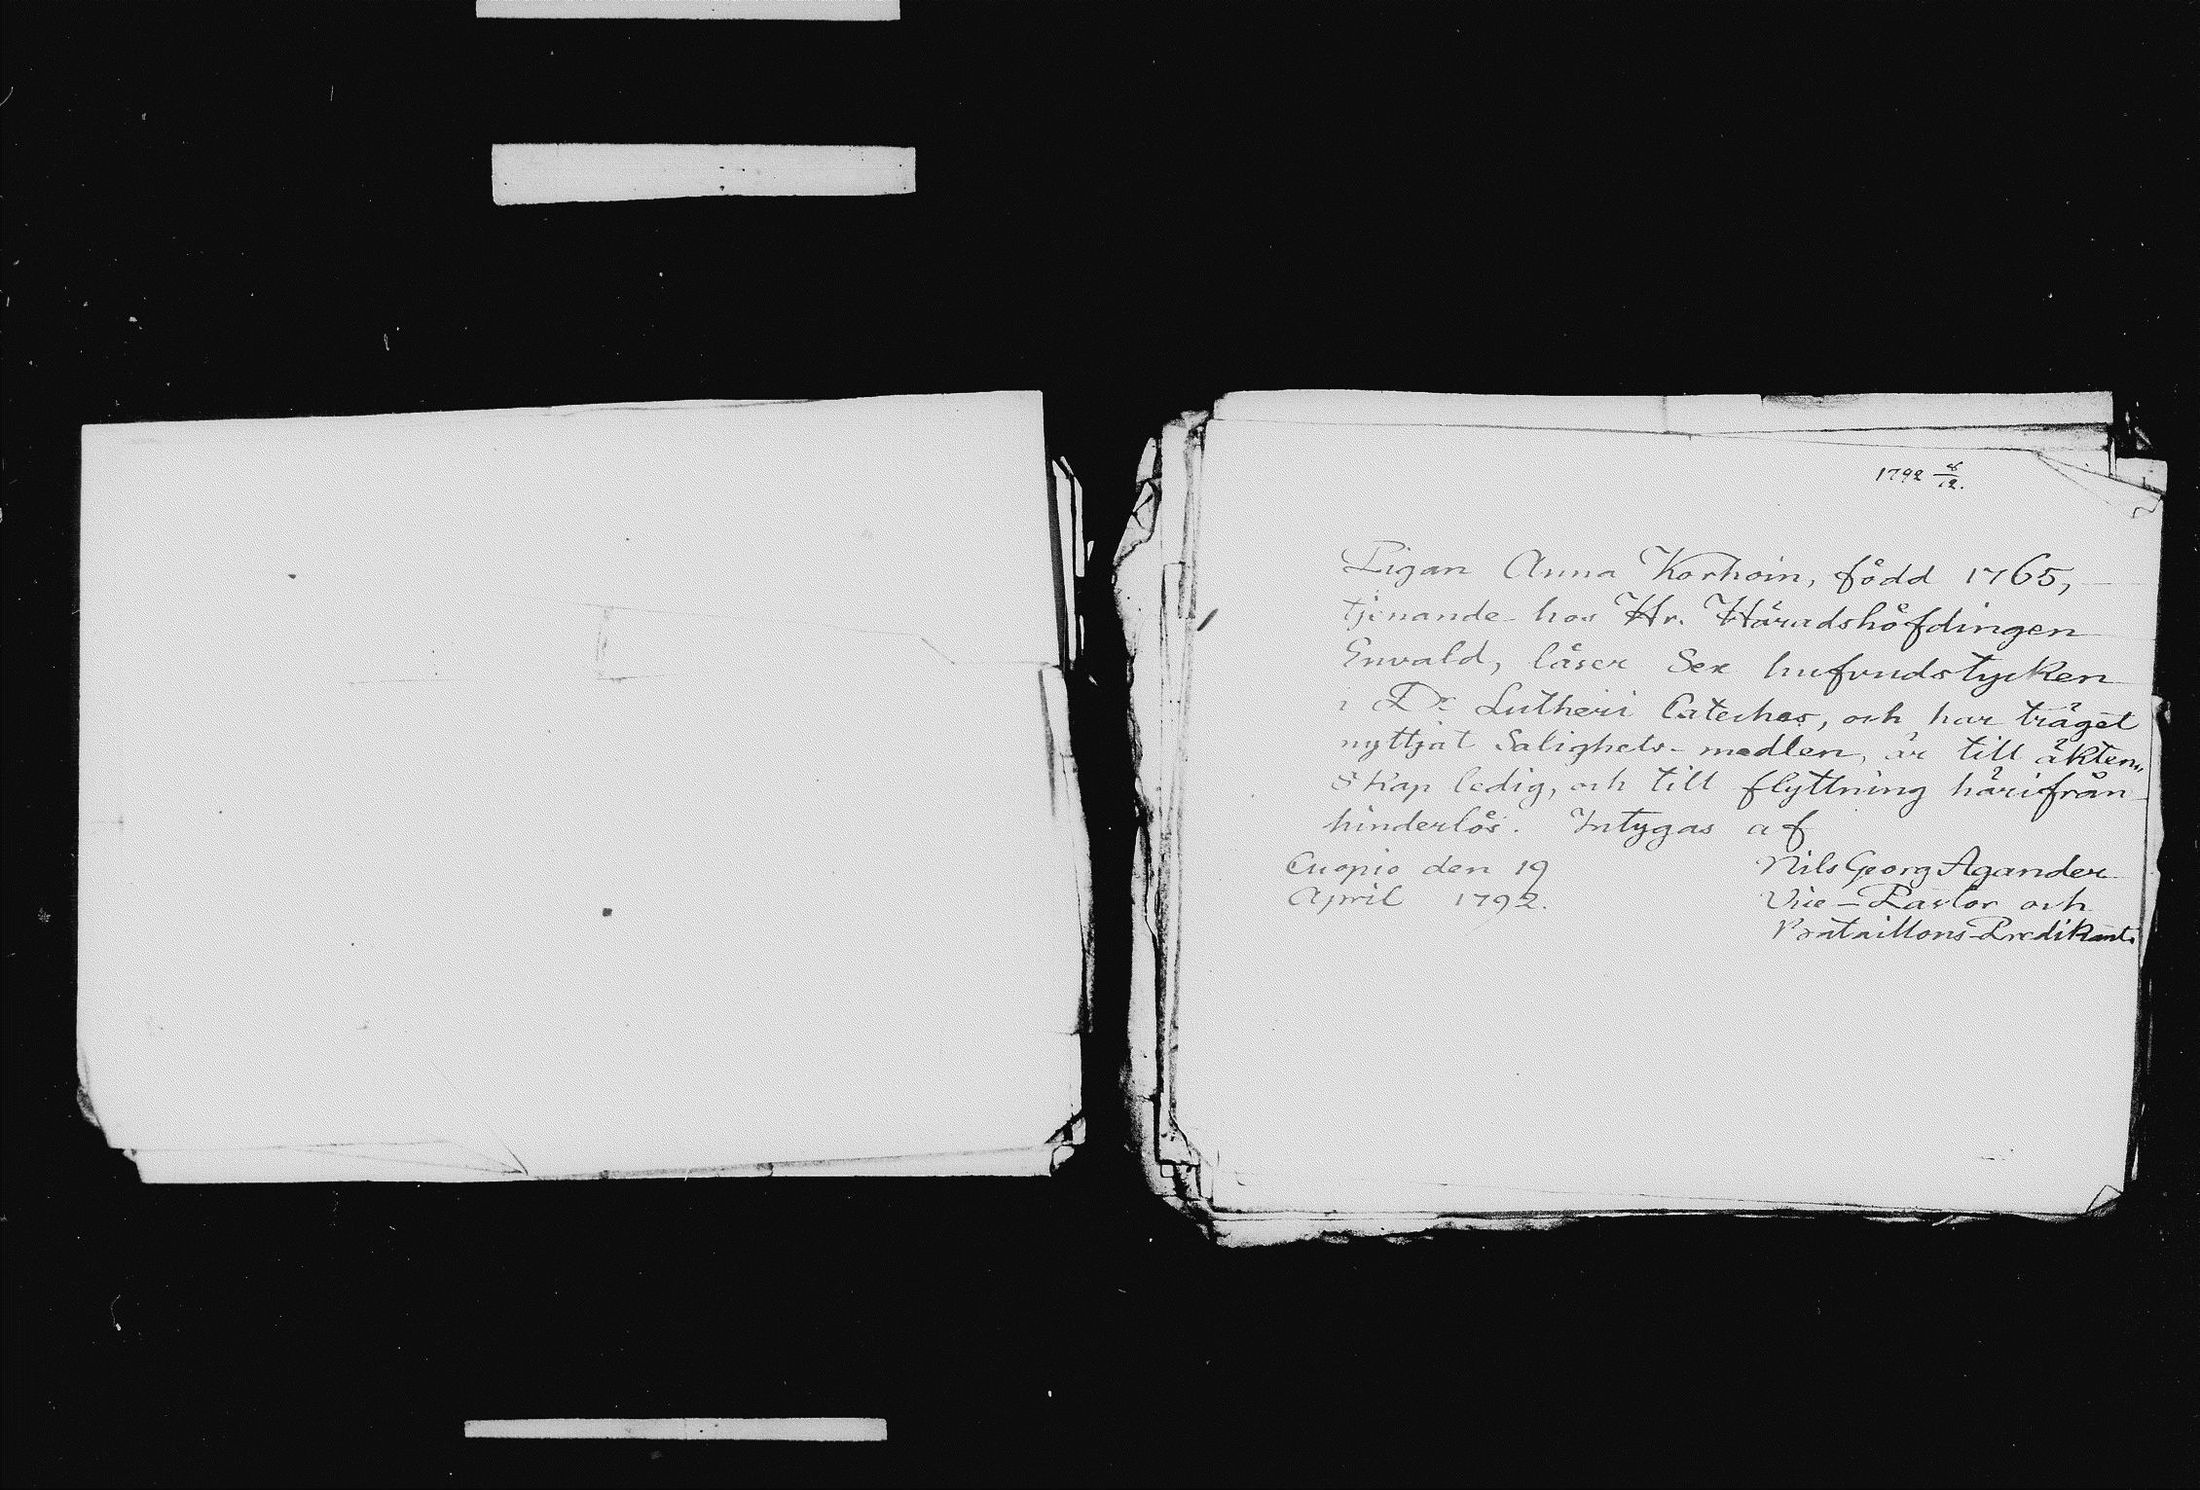 1792 6/12.
Pigan Anna Korhoin, född 1765,
tjenande hos Hr. Häradshöfdingen
Envald, läser Sex hufvudstycken
i Dr Lutheri Cateches, och har träget
nyttjat Salighets-medlen, är till äkten„
skap ledig, och till flyttning härifrån
hinderlös. Intygas af
Cuopio den 19 Nils Georg Agander
April 1792. Vice-Pastor och
Bataillons-Predikant.